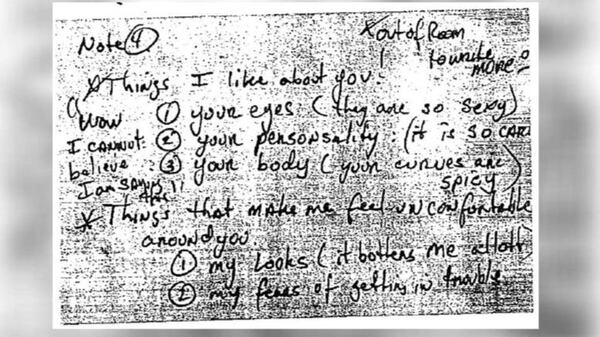 Note 4
*out of Room
to write
MORE
*Things I like about you:
(Wow I cannot believe I am saying this!!
1 your eyes (they are so sexy)
2 your personsality: (it is so CAR
3 your body (your curves are spicy)
*Things that make me feel uncomfortable
around you.
1 my Looks (it bothers me allott)
2 my fears of getting in trouble.